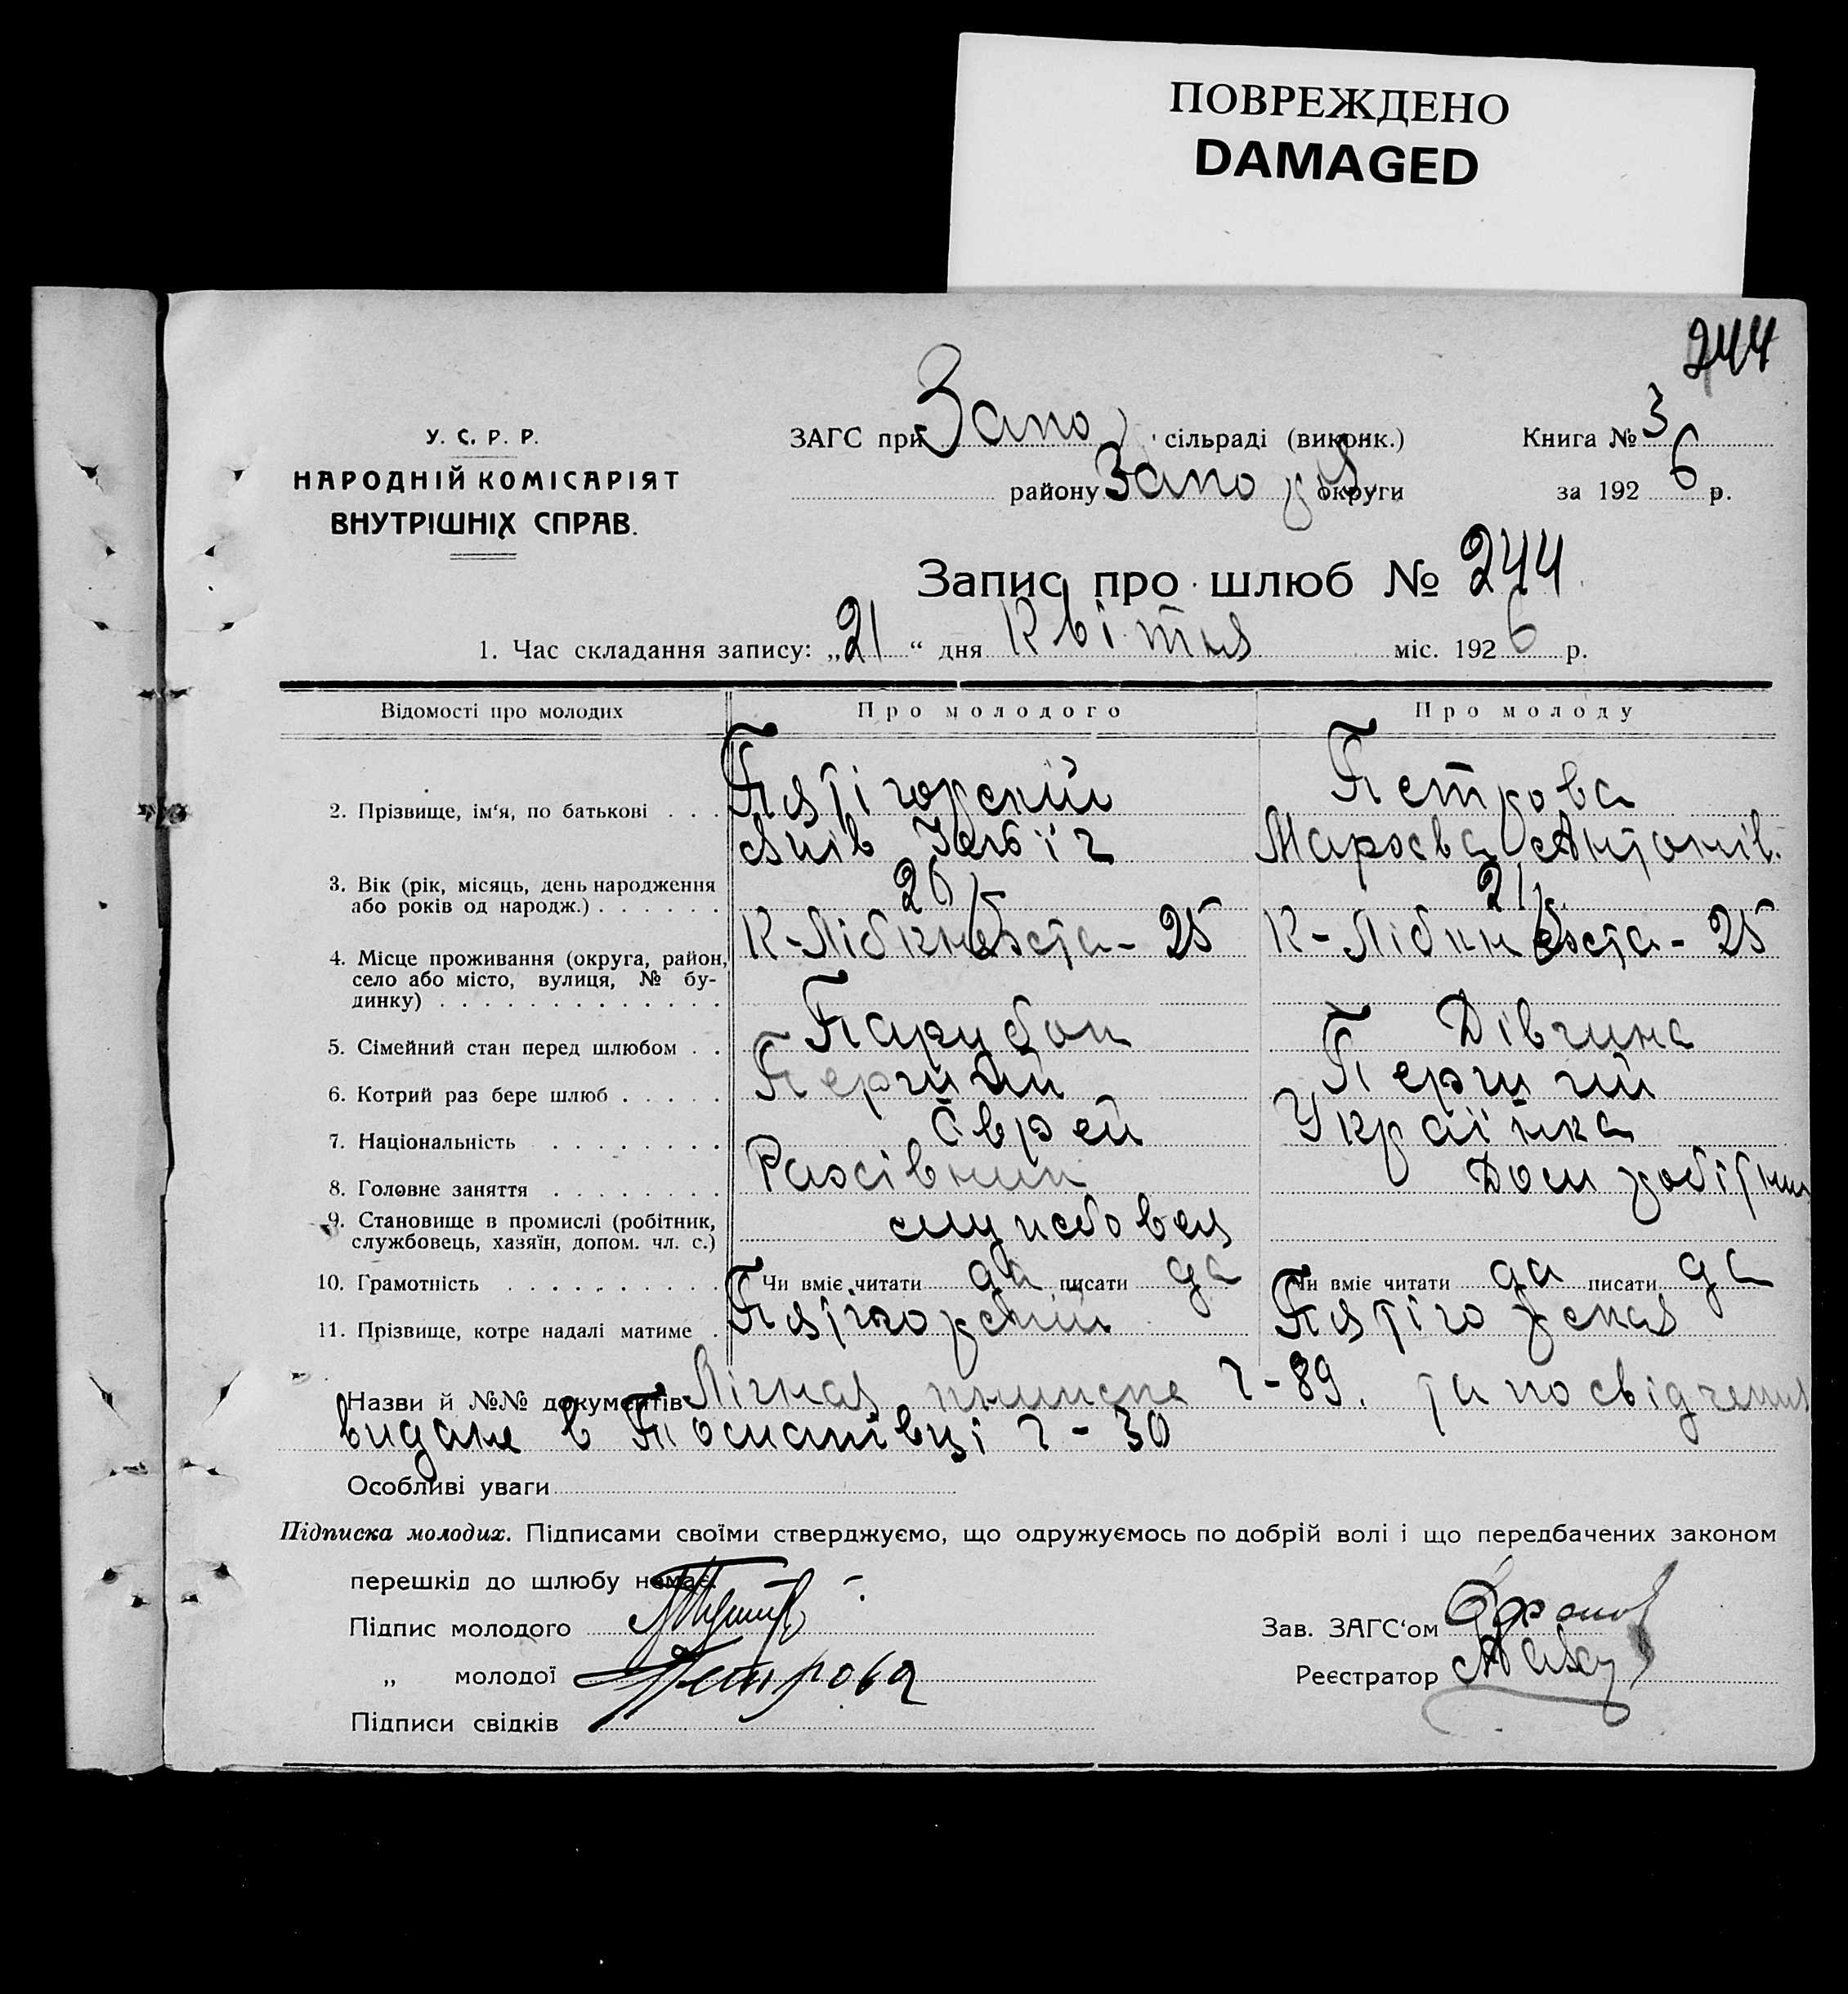 ПОВРЕЖДЕНО
DAMAGED
244
У. С. Р. Р.
НАРОДНІЙ КОМІСАРІЯТ
ВНУТРІШНІХ СПРАВ.
ЗАГС при Запо сільраді (виконк.) Книга № 3
району Запо округи за 1926 р.
Запис про шлюб № 244
1. Час складання запису: „21“ дня Квітня міс. 1926 р.
Відомості про молодих Про молодого Про молоду
2. Прізвище, ім'я, по батькові . . . Пятігорский Петрова
Антонів.
3. Вік (рік, місяць, день народження
або років од народж.) . . . . . . 26 21
4. Місце проживання (округа, район, К-Лібкнехста-25 К-Лібкнехста-25
село або місто, вулиця, № бу-
динку) . . . . . . . . . . . . .
5. Сімейний стан перед шлюбом . . Парубок Дівчина
6. Котрий раз бере шлюб . . . . . Перший Перший
7. Національність . . . . . . . . Єврей Українка
8. Головне заняття . . . . . . . . Рахівник Дом робітниц
9. Становище в промислі (робітник,
службовець, хазяїн, допом. чл. с.) службовец
10. Грамотність . . . . . . . . . Чи вміє читати да писати да Чи вміє читати да писати да
11. Прізвище, котре надалі матиме . Пятігорский Пятігорская
Назви й №№ документів Лічная книжка ч-89. та посвідчення
видане в ч-30
Особливі уваги
Підписка молодих. Підписами своїми стверджуємо, що одружуємось по добрій волі і що передбачених законом
перешкід до шлюбу немає.
Підпис молодого
Зав. ЗАГС'ом
„ молодої Петрова
Реєстратор
Підписи свідків